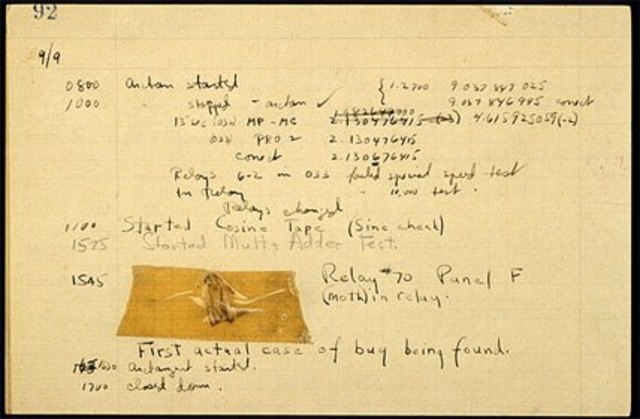 92
9/9
0800 Antan started { 1.2700 9.037 847 025
1000 " stopped - antan ✓ 9.037 846 995 correct
13" uc (032) MP - MC 2.130476415 (-3) 4.615925059(-2)
(033) PRO 2 2.130476415
correct 2.130676415
Relays 6-2 in 033 failed special speed test
In Relay " 10,000 test.
Relays changed
1100 Started Cosine Tape (Sine check)
1525 Started Mult + Adder Test.
1545 Relay #70 Panel F
(moth) in relay.
First actual case of bug being found.
1630 Antangent started.
1700 closed down.